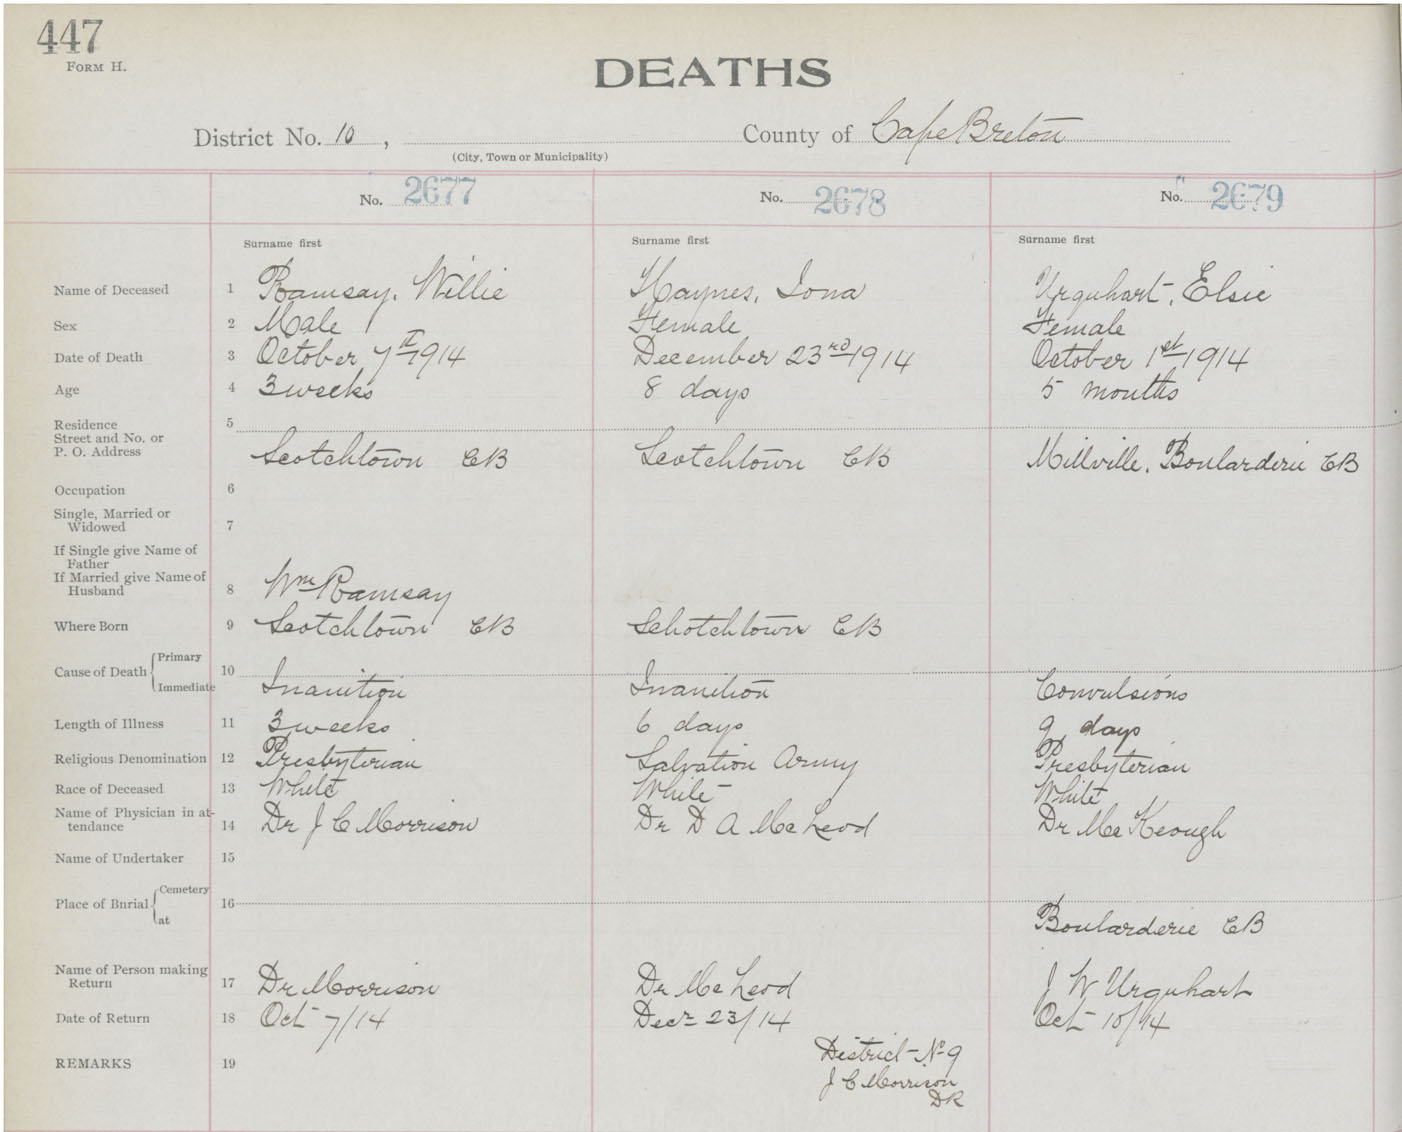 447
FORM H.
DEATHS
District No. 10 , County of Cape Breton
(City, Town or Municipality)
No. 2677 No. 2678 No. 2679
Surname first Surname first Surname first
Name of Deceased 1 Ramsay, Willie Haynes, Iona Urquhart, Elsie
Sex 2 Male Female Female
Date of Death 3 October 7th 1914 December 23rd 1914 October 1st 1914
Age 4 3 weeks 8 days 5 months
Residence 5
Street and No. or
P. O. Address Scotchtown CB Scotchtown CB Millville, Boularderie CB
Occupation 6
Single, Married or
Widowed 7
If Single give Name of
Father
If Married give Name of
Husband 8 Wm Ramsay
Where Born 9 Scotchtown CB Schotchtown CB
Cause of Death Primary 10
Immediate Inanition Inanition Convulsions
Length of Illness 11 3 weeks 6 days 9 days
Religious Denomination 12 Presbyterian Salvation Army Presbyterian
Race of Deceased 13 White White White
Name of Physician in at-
tendance 14 Dr J C Morrison Dr D A McLeod Dr McKeough
Name of Undertaker 15
Place of Burial Cemetery 16
at Boularderie CB
Name of Person making
Return 17 Dr Morrison Dr McLeod J W Urquhart
Date of Return 18 Oct 7/14 Decr 23/14 Oct 10/14
REMARKS 19 District No 9
J C Morrison
DR